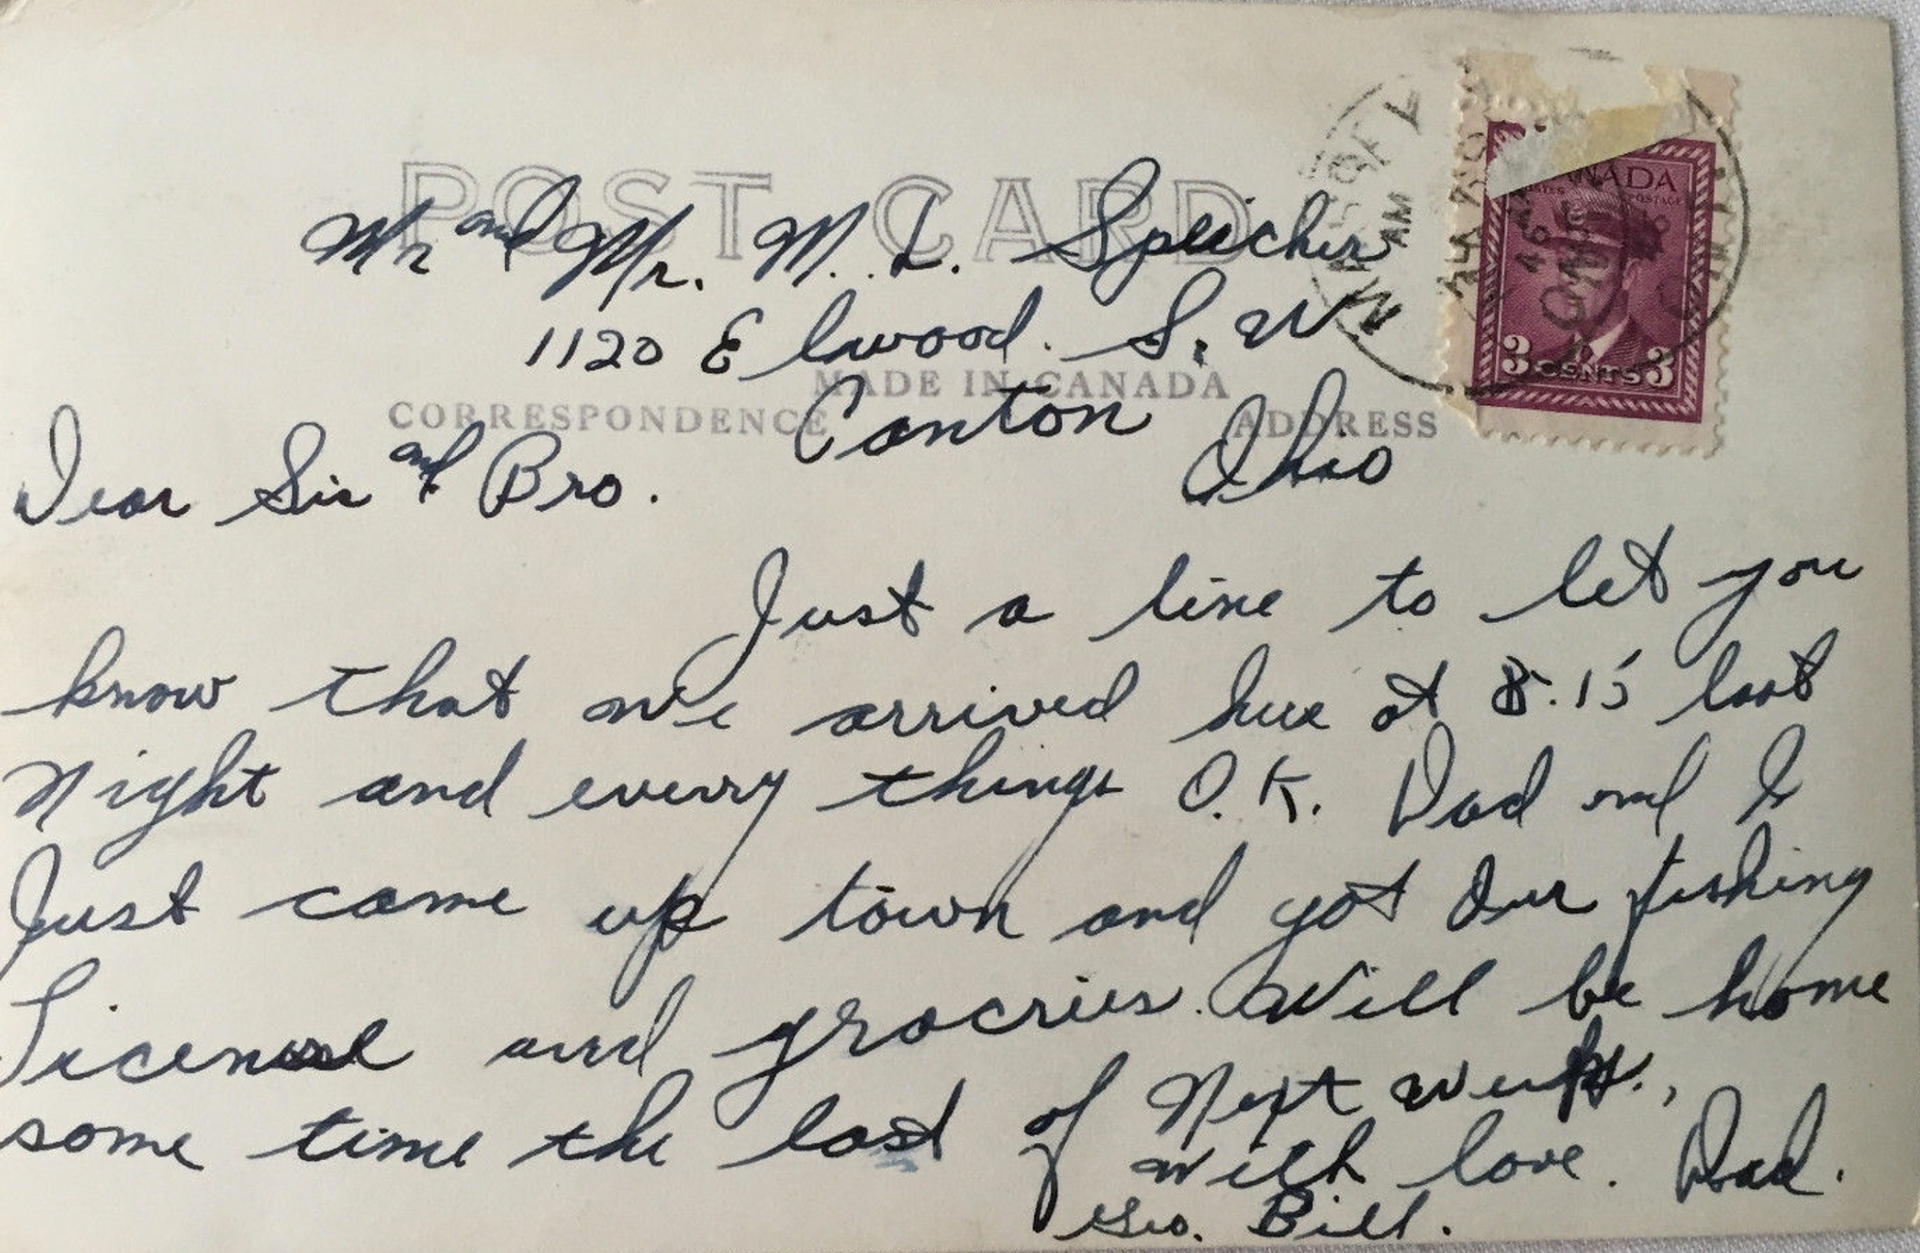 POST CARD
Mr and Mr. M. L. Speicher
1120 Elwood. S. W
MADE IN CANADA
CORRESPONDENCE
ADDRESS
Canton
Ohio
AM
46
CANADA
POSTAGE
3 CENTS 3
Dear Sis and Bro.
Just a line to let you
know that we arrived here at 8.15 last
Night and every things O.K. Dad and I
Just came up town and got Our fishing
License and grocries. Will be home
some time the last of Next week.,
with love. Dad.
Geo. Bill.